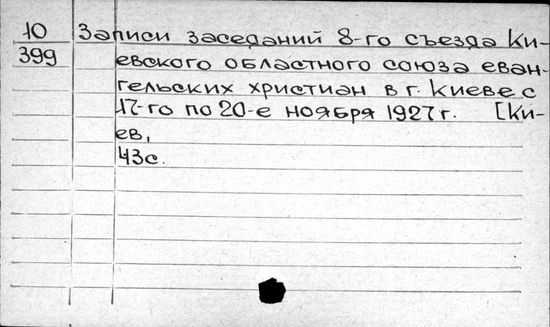 10 Записи заседаний 8-го съезда Ки-
399 евского областного союза еван-
гельских христиан в г. Киеве с
17-го по 20-е ноября 1927 г. [Ки-
ев,
43с.